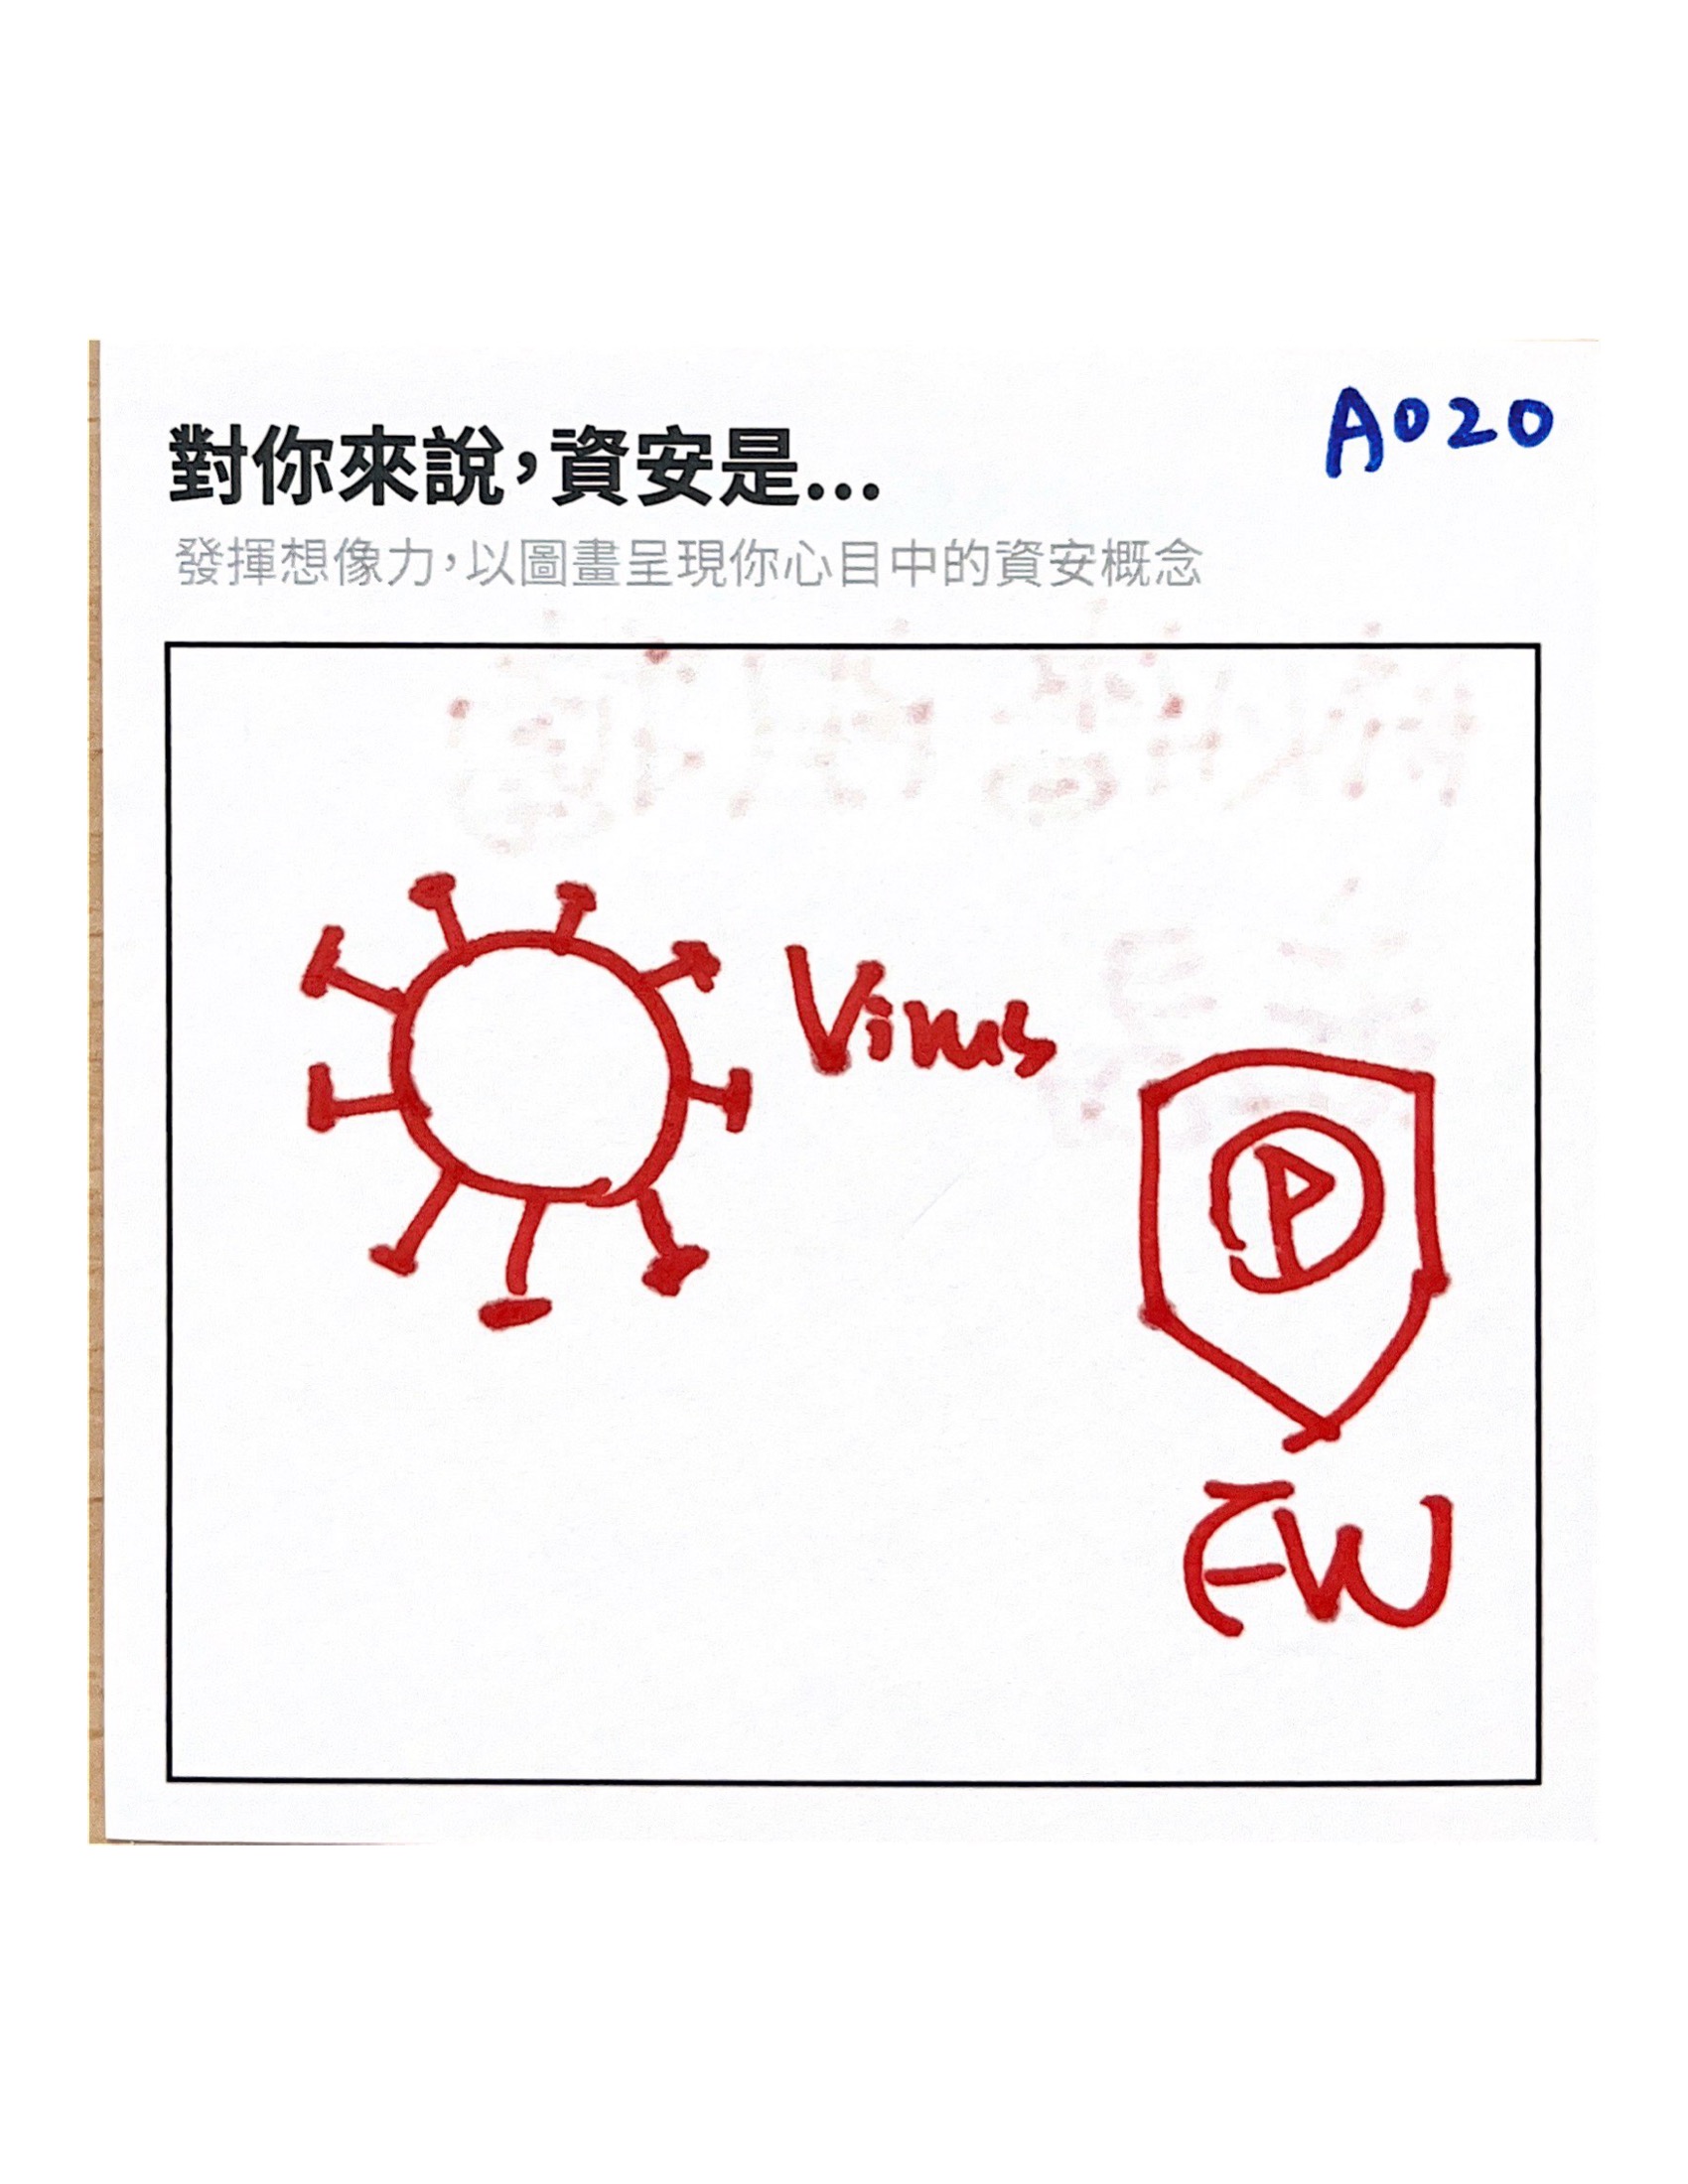 A020
對你來說，資安是...
發揮想像力，以圖畫呈現你心目中的資安概念
Virus
P
FW